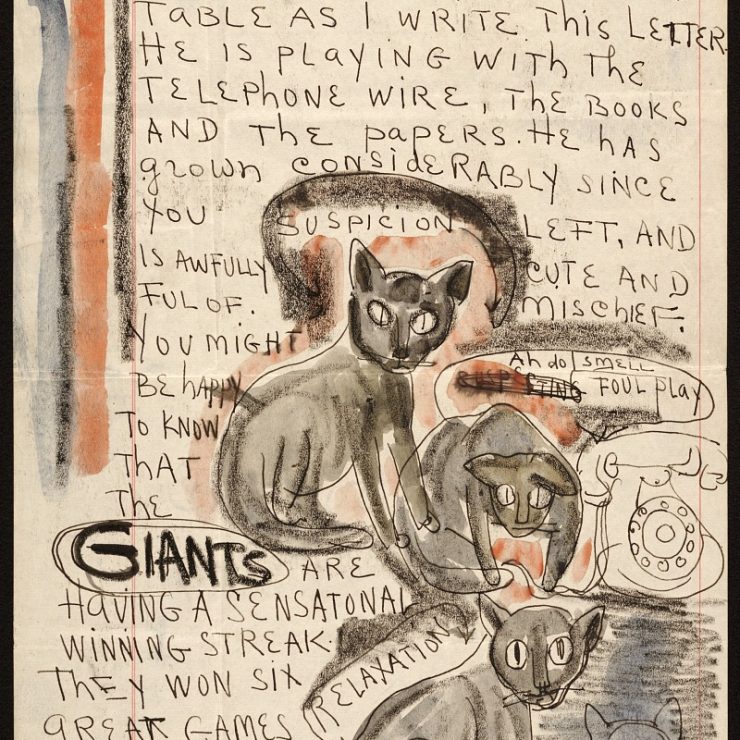 TABLE AS I WRITE THIS LETTER.
HE IS PLAYING WITH THE
TELEPHONE WIRE, THE BOOKS
AND THE PAPERS. HE HAS
GROWN CONSIDERABLY SINCE
YOU LEFT, AND
SUSPICION
IS AWFULLY CUTE AND
FUL OF. MISCHIEF.
YOU MIGHT
Ah do SMELL
FOUL play
BE HAPPY
TO KNOW
THAT
THE
GIANTS ARE
HAVING A SENSATONAL
WINNING STREAK.
THEY WON SIX
RELAXATION
GREAT GAMES